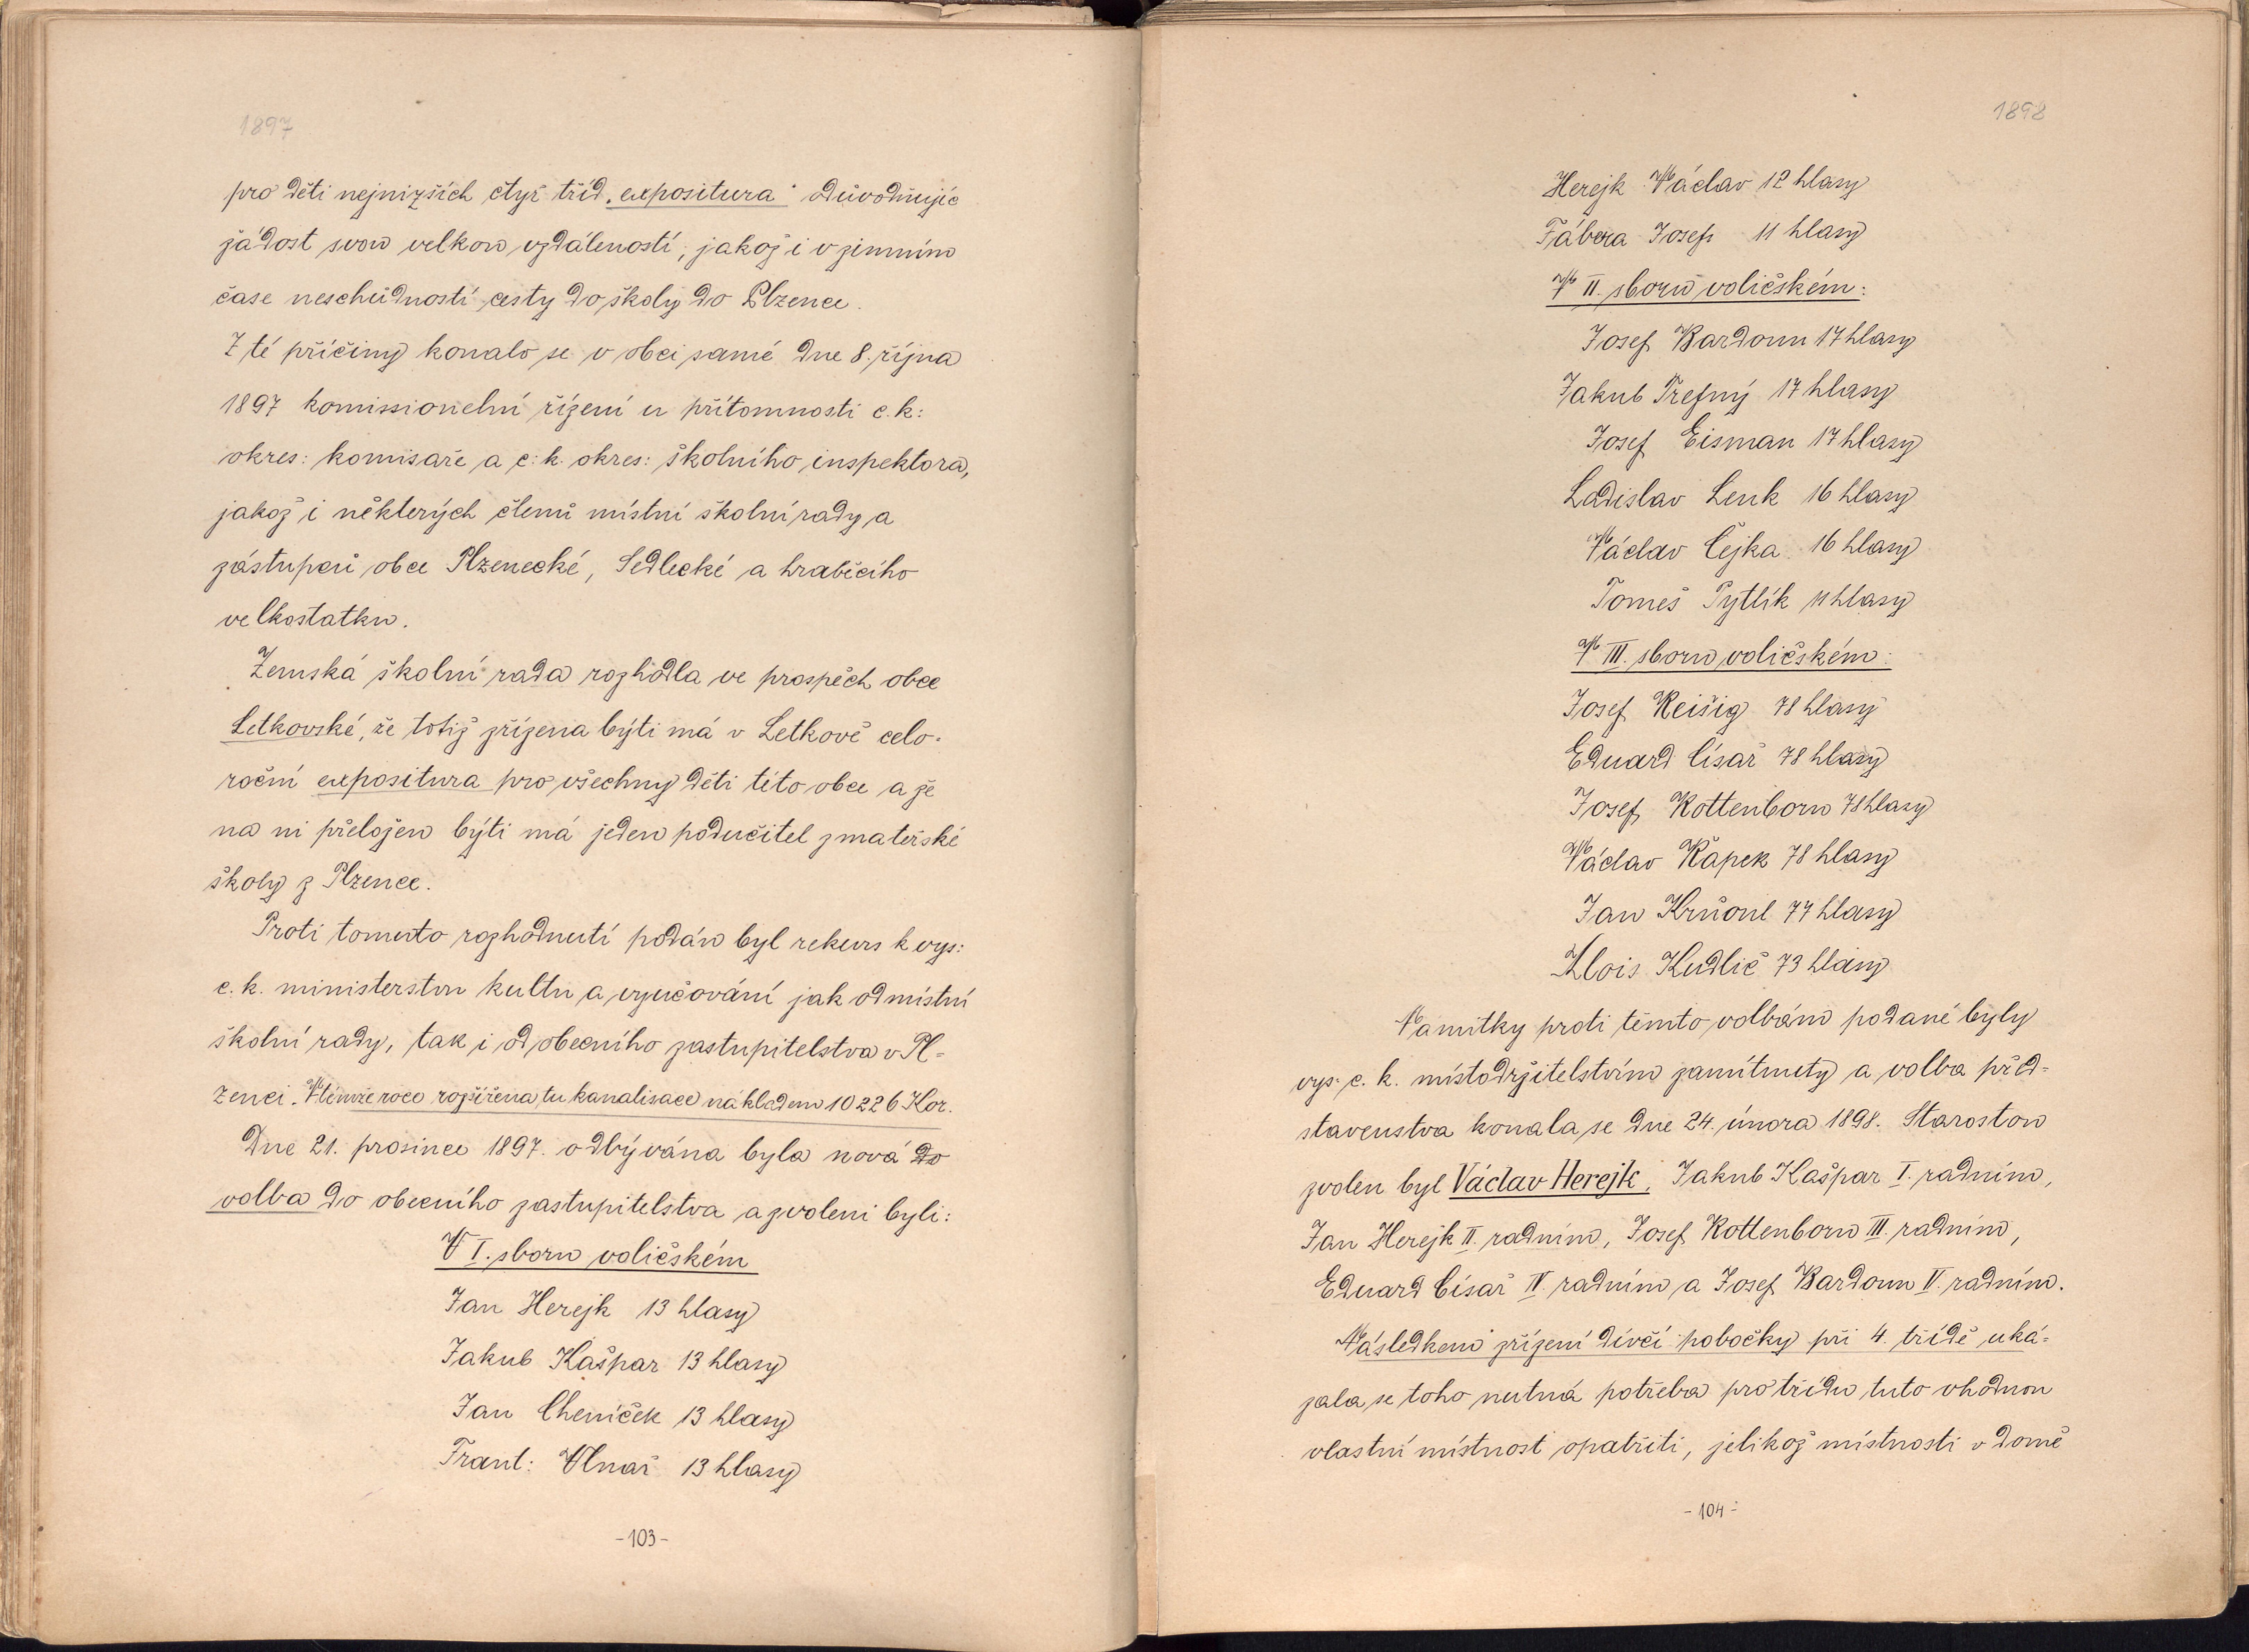 1897
pro děti nejnižších čtyř tříd „expositura“ odůvodňujíc
žádost svou velkou vzdáleností, jakož i v zimním
čase neschůdností cesty do školy do Plzence.
Z té příčiny konalo se v obci samé dne 8. října
1897 komissionelní řízení u přítomnosti c. k:
okres: komisaře a c: k. okres: školního inspektora,
jakož i některých členů místní školní rady a
zástupců obce Plzenecké, Sedlecké a hraběcího
velkostatku.
Zemská školní rada rozhodla ve prospěch obce
Letkovské, že totiž zřízena býti má v Letkově celo-
roční expositura pro všechny děti této obce a že
na ni přeložen býti má jeden podučitel z mateřské
školy z Plzence.
Proti tomuto rozhodnutí podán byl rekurs k vys:
c. k. ministerstvu kultu a vyučování jak od místní
školní rady, tak i od obecního zastupitelstva v Pl-
zenci. V témže roce rozšířena tu kanalisace nákladem 10226 Kor.
Dne 21. prosince 1897. odbývána byla nová do
volba do obecního zastupitelstva a zvoleni byli:
V I. sboru voličském
Jan Herejk 13 hlasy
Jakub Kašpar 13 hlasy
Jan Cheníček 13 hlasy
Frant: Vlnař 13 hlasy
-103-
1898
Herejk Václav 12 hlasy
Fábera Josef 11 hlasy
V II. sboru voličském:
Josef Bardoun 17 hlasy
Jakub Trefný 17 hlasy
Josef Eisman 17 hlasy
Ladislav Lenk 16 hlasy
Václav Čejka 16 hlasy
Tomeš Pytlík 11 hlasy
V III. sboru voličském:
Josef Reišig 78 hlasy
Eduard Císař 78 hlasy
Josef Kottenborn 78 hlasy
Václav Kapek 78 hlasy
Jan Krňoul 77 hlasy
Alois Kudlič 73 hlasy
Námitky proti těmto volbám podané byly
vys: c. k. místodržitelstvím zamítnuty a volba před-
stavenstva konala se dne 24. února 1898. Starostou
zvolen byl Václav Herejk, Jakub Kašpar I. radním,
Jan Herejk II. radním, Josef Kottenborn III. radním,
Eduard Císař IV. radním a Josef Bardoun V. radním.
Následkem zřízení dívčí pobočky při 4. třídě uká-
zala se toho nutná potřeba pro třídu tuto vhodnou
vlastní místnost opatřiti, jelikož místnosti v domě
-104-